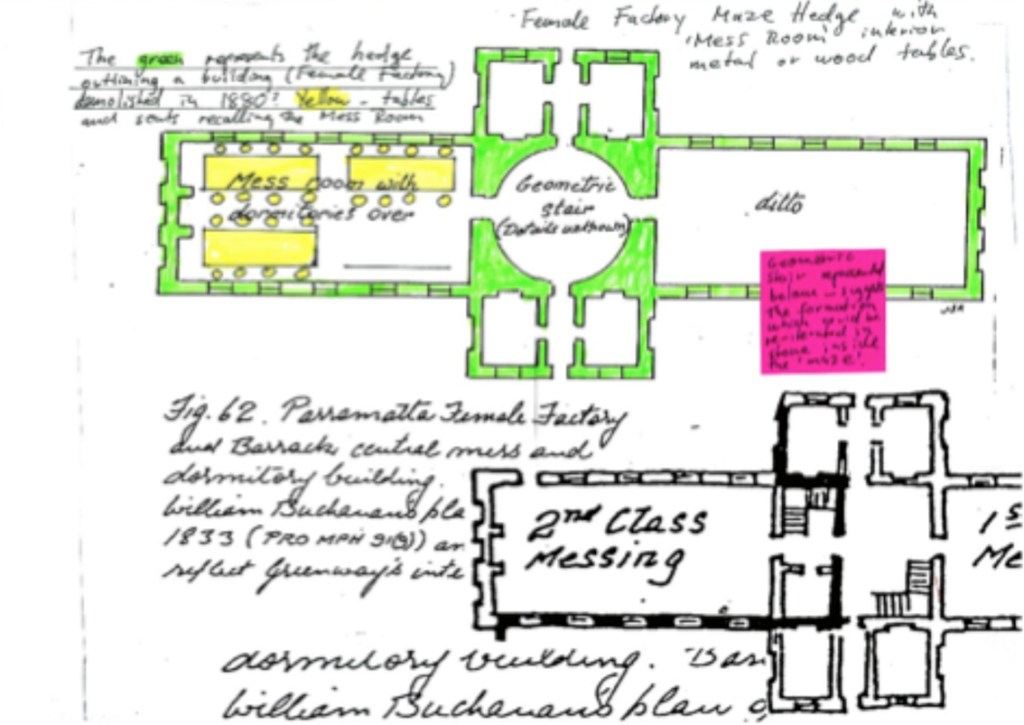 Female Factory Maze Hedge with
'Mess Room' interior
metal or wood tables.
The green represents the hedge
outlining a building (Female Factory)
demolished in 1880? Yellow - tables
and seats recalling the Mess Room
Mess room with
dormitories over
Geometric
stair
(Details unknown)
ditto
Geometric
stair represented
below
the formation
which could be
in
stone inside
the 'maze'.
Fig. 62. Parramatta Female Factory
and Barrack, central mess and
dormitory building.
William Buchanan's pla
1833 (PRO MPH 91(9)) an
reflect Greenway's inte
2nd Class
Messing
1s
Me
dormitory building. Bar
William Buchanan's plan